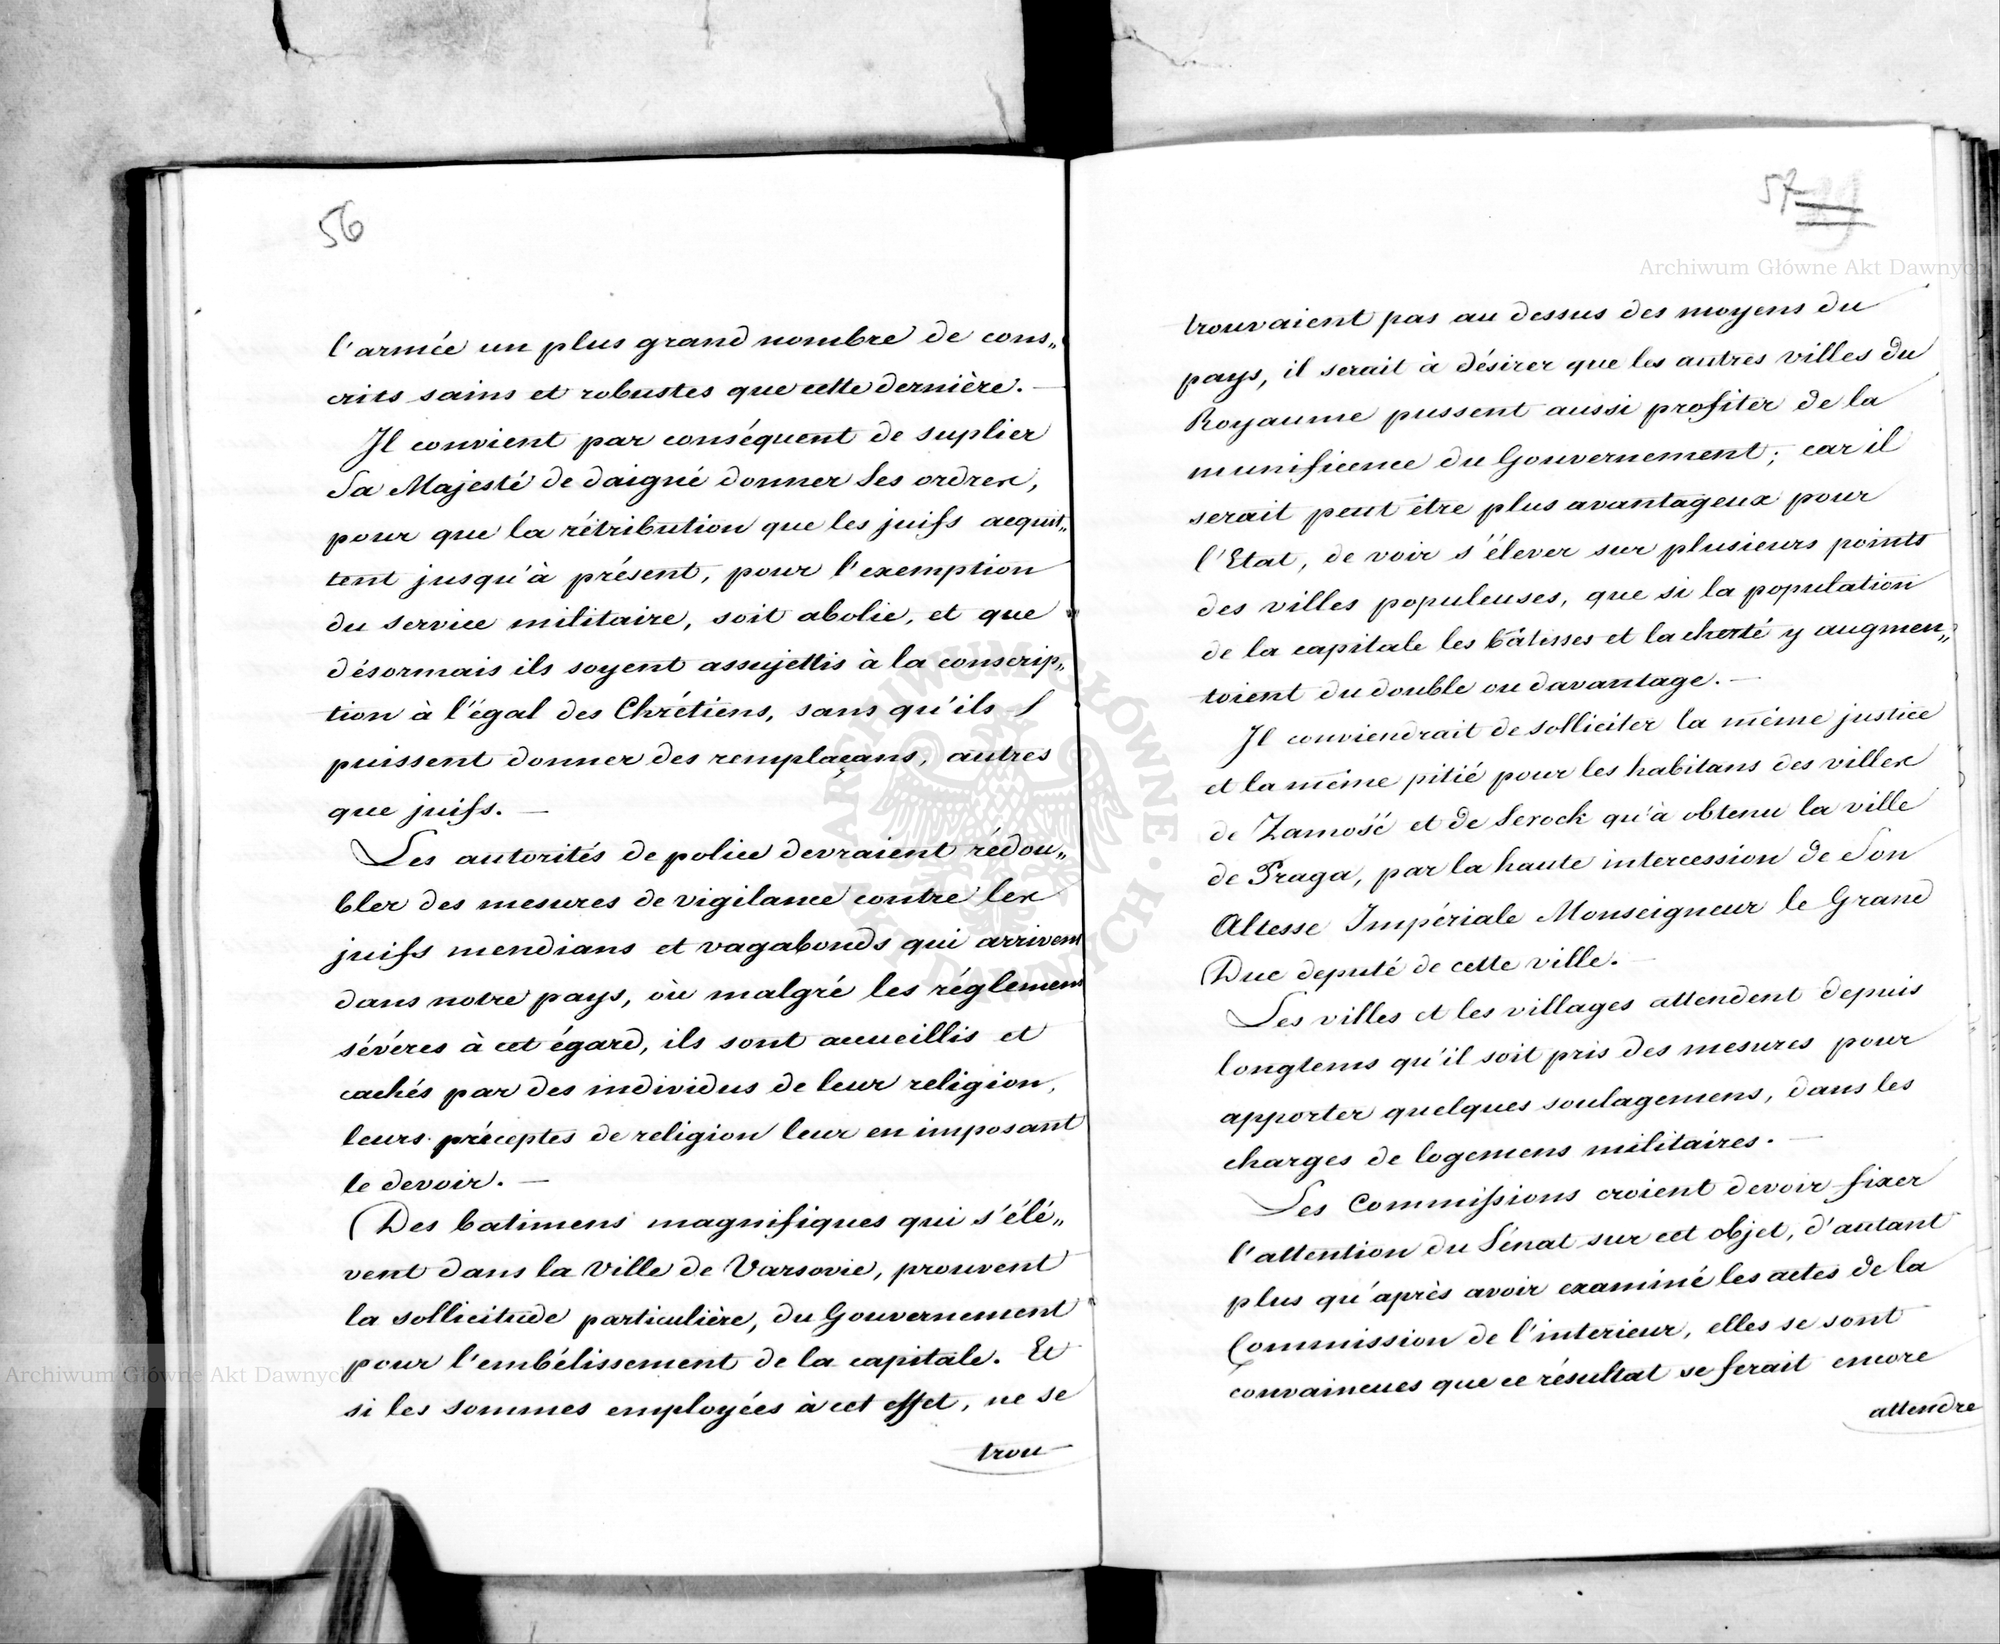 56
l'armée un plus grand nombre de cons„
crits sains et robustes que cette dernière. —
Il convient par conséquent de suplier
Sa Majesté de daigné donner Ses ordres,
pour que la rétribution que les juifs acquit„
tent jusqu'à présent, pour l'exemption
du service militaire, soit abolie, et que
désormais ils soyent assujettis à la conscrip„
tion à l'égal des Chrétiens, sans qu'ils
puissent donner des remplaçans, autres
que juifs. —
Les autorités de police devraient rédou„
bler des mesures de vigilance contre les
juifs mendians et vagabonds qui arrivent
dans notre pays, où malgré les réglemens
sévéres à cet égard, ils sont accueillis et
cachés par des individus de leur religion,
leurs préceptes de religion leur en imposant
le devoir. —
Des batimens magnifiques qui s'élé„
vent dans la Ville de Varsovie, prouvent
la sollicitude particulière, du Gouvernement
pour l'embélissement de la capitale. Et
si les sommes employées à cet effet, ne se
trou
57
trouvaient pas au dessus des moyens du
pays, il serait à désirer que les autres villes du
Royaume pussent aussi profiter de la
munificence du Gouvernement; car il
serait peut être plus avantageux pour
l'Etat, de voir s'élever sur plusieurs points
des villes populeuses, que si la population
de la capitale les bâtisses et la cherté y augmen„
toient du double ou davantage. —
Il conviendrait de solliciter la même justice
et la même pitié pour les habitans des villes
de Zamość et de Serock qu'à obtenu la ville
de Praga, par la haute intercession de Son
Altesse Impériale Monseigneur le Grand
Duc deputé de cette ville. —
Les villes et les villages attendent depuis
longtems qu'il soit pris des mesures pour
apporter quelques soulagemens, dans les
charges de logemens militaires. —
Les Commissions croient devoir fixer
l'attention du Sénat sur cet objet, d'autant
plus qu'après avoir examiné les actes de la
Commission de l'interieur, elles se sont
convaincues que ce résultat se ferait encore
attendre
Archiwum Główne Akt Dawnych
Archiwum Główne Akt Dawnych
ARCHIWUM GŁÓWNE AKT DAWNYCH